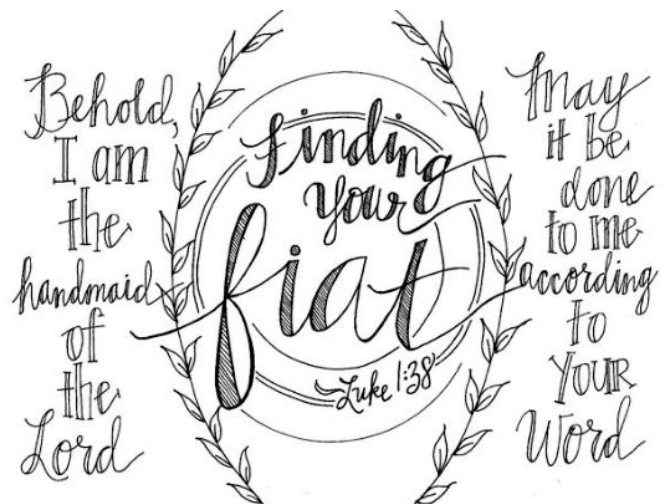 Behold,
I am
the
handmaid
of
the
Lord
Finding
Your
fiat
Luke 1:38
May
it be
done
to me
according
to
YOUR
Word